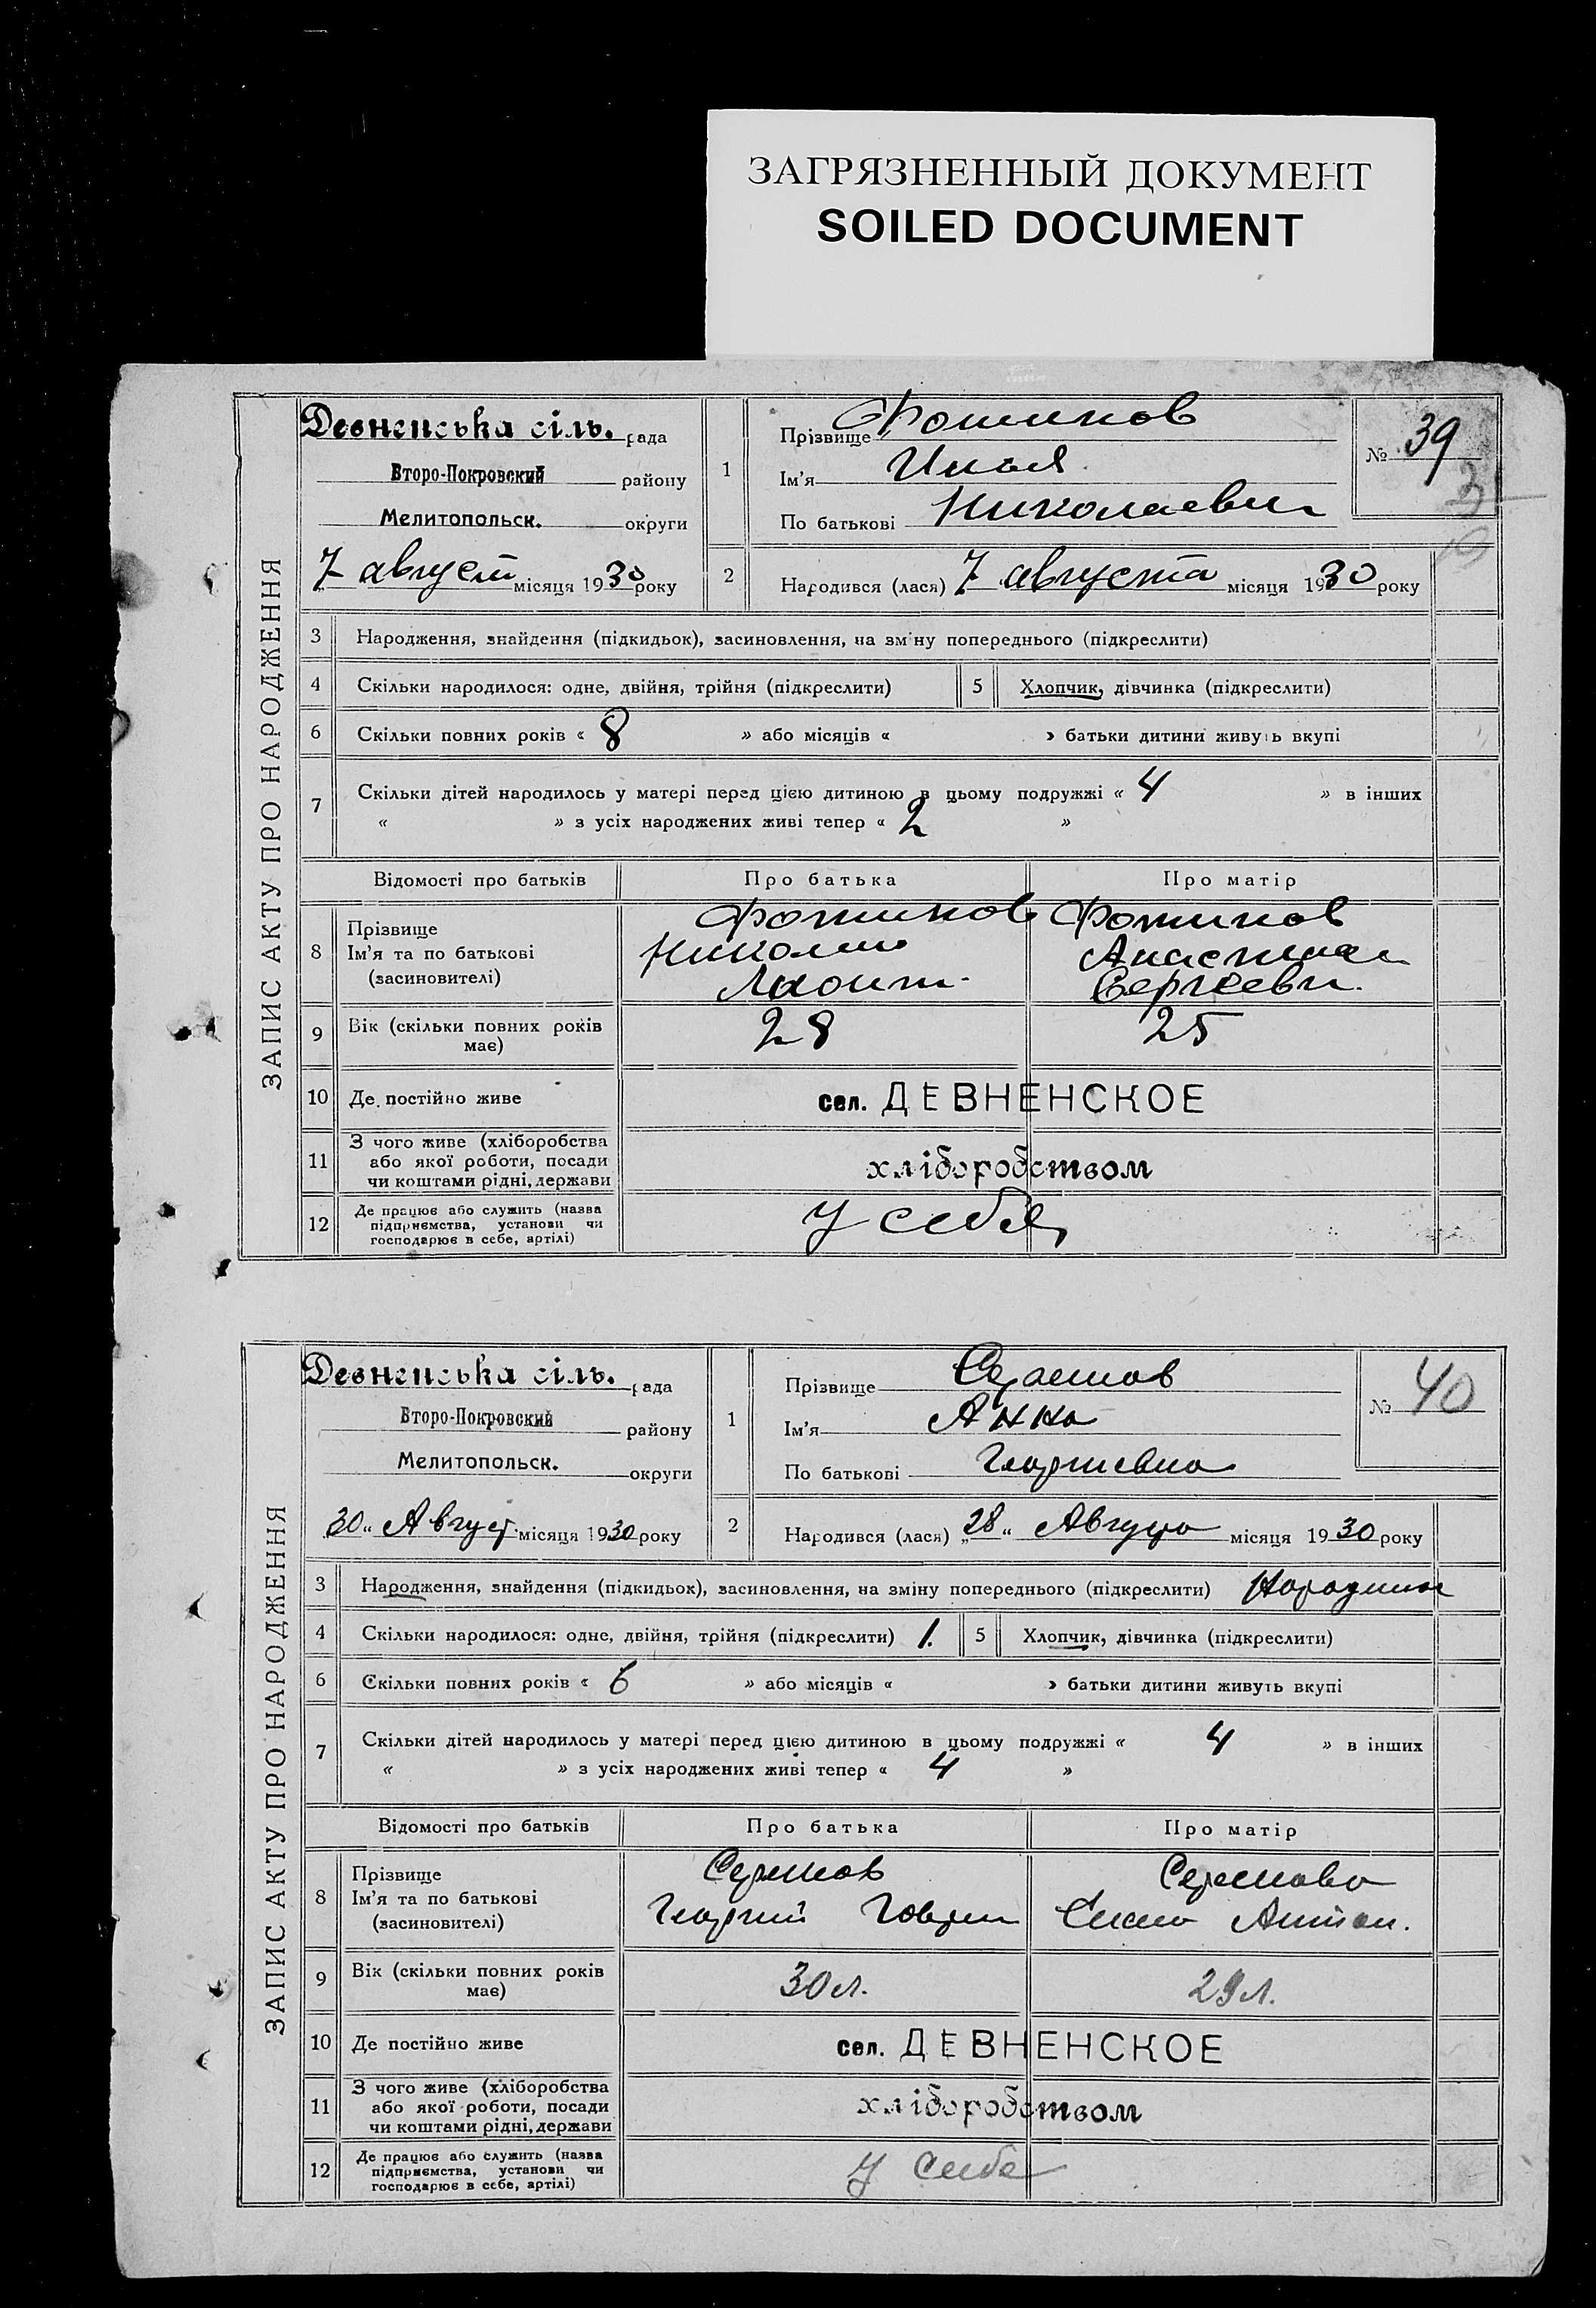 ЗАГРЯЗНЕННЫЙ ДОКУМЕНТ
SOILED DOCUMENT
ЗАПИС АКТУ ПРО НАРОДЖЕННЯ
Девненська сіль. рада
Второ-Покровский району
Мелитопольск. округи
7 август місяця 1930 року
1
Прізвище Фотинов
Ім'я Илья
По батькові Николаевич
№ 39
2 Народився (лася) 7 августа місяця 1930 року
3 Народження, знайдення (підкидьок), засиновлення, на зміну попереднього (підкреслити)
4 Скільки народилося: одне, двійня, трійня (підкреслити) 5 Хлопчик, дівчинка (підкреслити)
6 Скільки повних років « 8 » або місяців « » батьки дитини живуть вкупі
7 Скільки дітей народилось у матері перед цією дитиною в цьому подружжі « 4 » в інших
« » з усіх народжених живі тепер « 2 »
Відомості про батьків Про батька Про матір
8 Прізвище
Ім'я та по батькові
(засиновителі)
Фотинов
Николай
Фотинов
Сергеевн.
9 Вік (скільки повних років
має)
28 25
10 Де постійно живе сел. ДЕВНЕНСКОЕ
11 З чого живе (хліборобства
або якої роботи, посади
чи коштами рідні, держави
хліборобством
12 Де працює або служить (назва
підприємства, установи чи
господарює в себе, артілі)
У себя
ЗАПИС АКТУ ПРО НАРОДЖЕННЯ
Девненська сіль. рада
Второ-Покровский району
Мелитопольск. округи
30 " Август місяця 1930 року
1
Прізвище
Ім'я Анна
По батькові Георгиевна
№ 40
2 Народився (лася) „28 " Августа місяця 1930 року
3 Народження, знайдення (підкидьок), засиновлення, на зміну попереднього (підкреслити)
4 Скільки народилося: одне, двійня, трійня (підкреслити) 1. 5 Хлопчик, дівчинка (підкреслити)
6 Скільки повних років « 6 » або місяців « » батьки дитини живуть вкупі
7 Скільки дітей народилось у матері перед цією дитиною в цьому подружжі « 4 » в інших
« » з усіх народжених живі тепер « 4 »
Відомості про батьків Про батька Про матір
8 Прізвище
Ім'я та по батькові
(засиновителі)
Георгий
9 Вік (скільки повних років
має)
30 л. 29 л.
10 Де постійно живе сел. ДЕВНЕНСКОЕ
11 З чого живе (хліборобства
або якої роботи, посади
чи коштами рідні, держави
хліборобством
12 Де працює або служить (назва
підприємства, установи чи
господарює в себе, артілі)
У себе